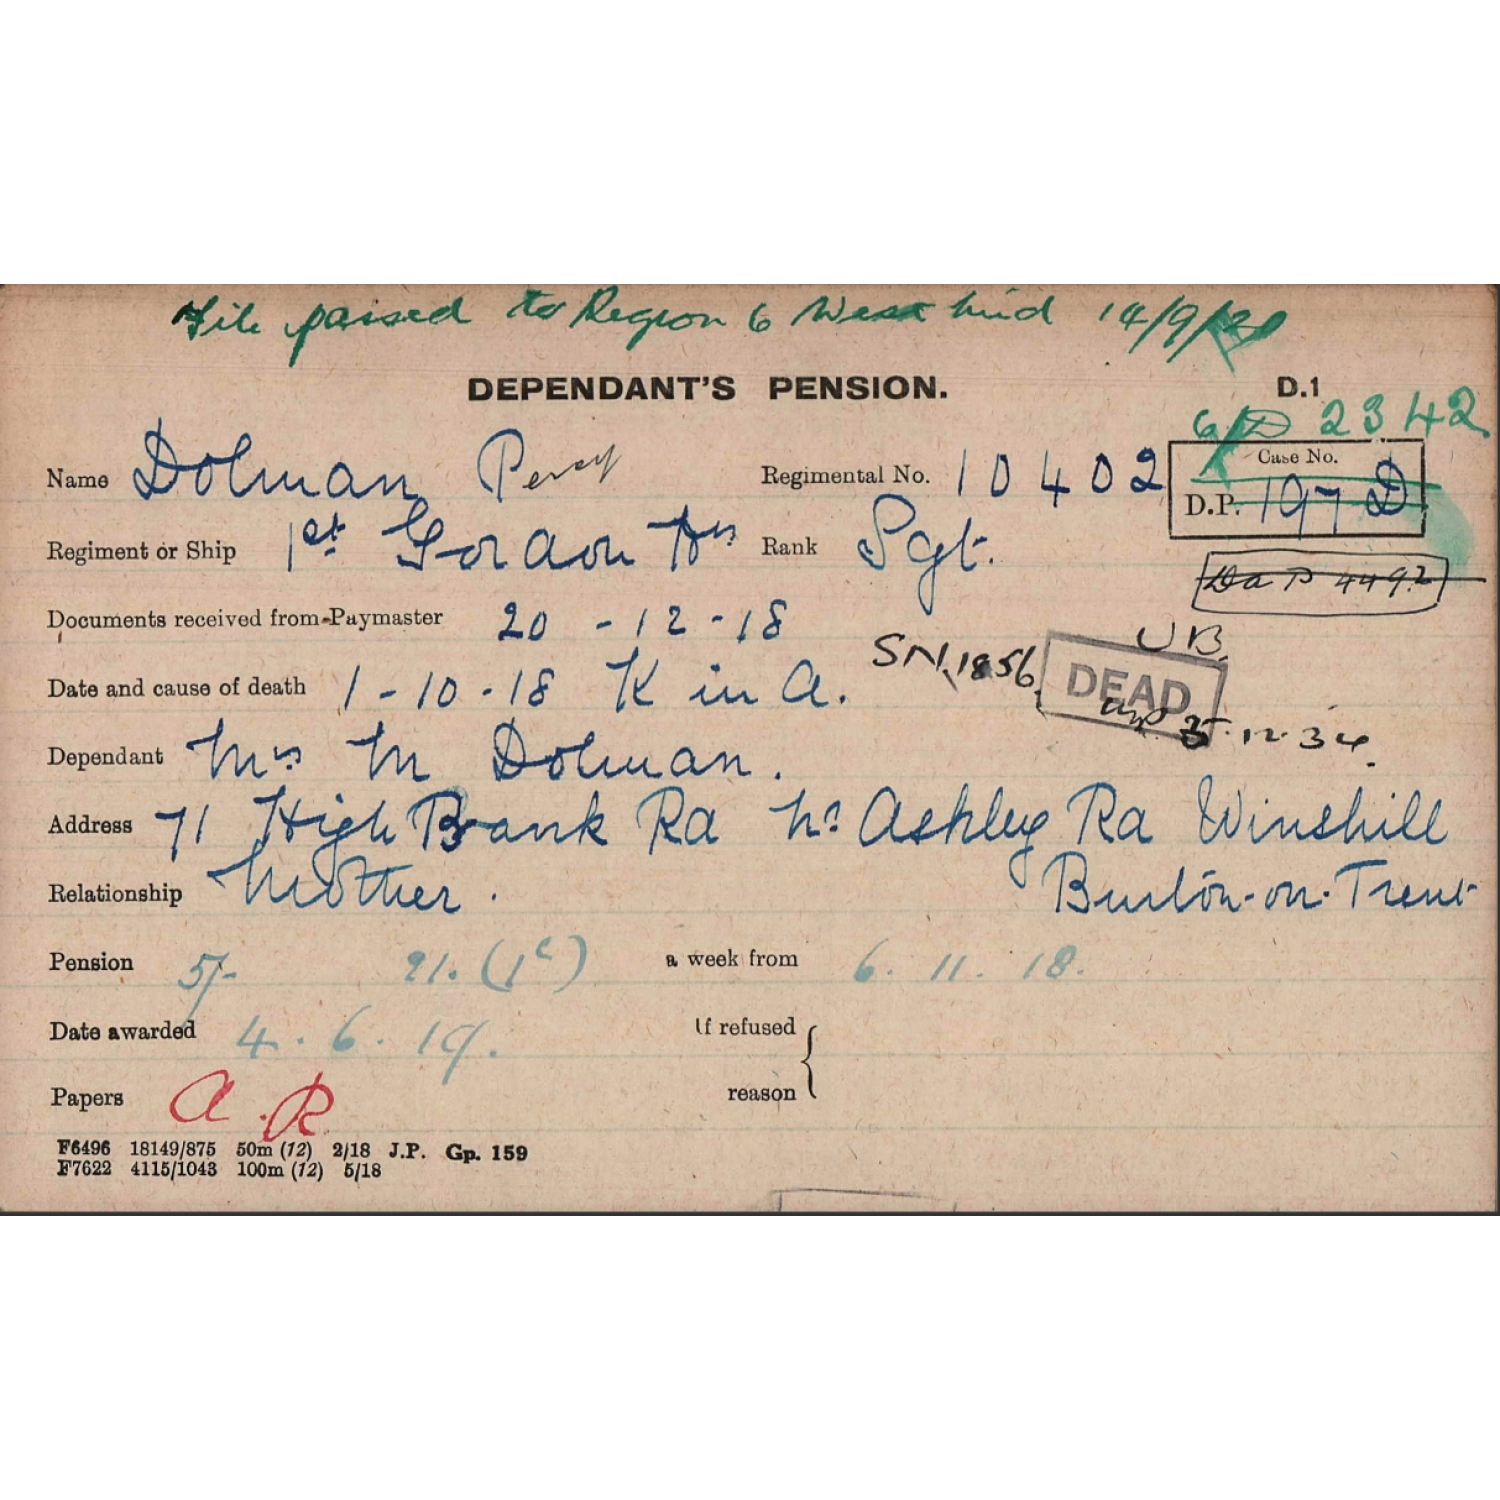 File passed to Region 6 West Mid 14/9/20
DEPENDANT'S PENSION. D.1
6/D 2342
Name Dolman Percy Regimental No. 10402 Case No.
D.P. 197 D
Regiment or Ship 1st Gordon Hrs Rank Sgt.
Da P 4492
Documents received from Paymaster 20-12-18
SN 1856 UB.
DEAD
Date and cause of death 1-10-18 K in A.
5.12.34.
Dependant Mrs M Dolman.
Address 71 High Bank Rd Nr Ashley Rd Winshill
Relationship Mother. Burton-on-Trent
Pension 5/- 21. (1c) a week from 6.11.18.
Date awarded 4.6.19. If refused
reason
Papers A.R.
F6496 18149/875 50m (12) 2/18 J.P. Gp. 159
F7622 4115/1043 100m (12) 5/18